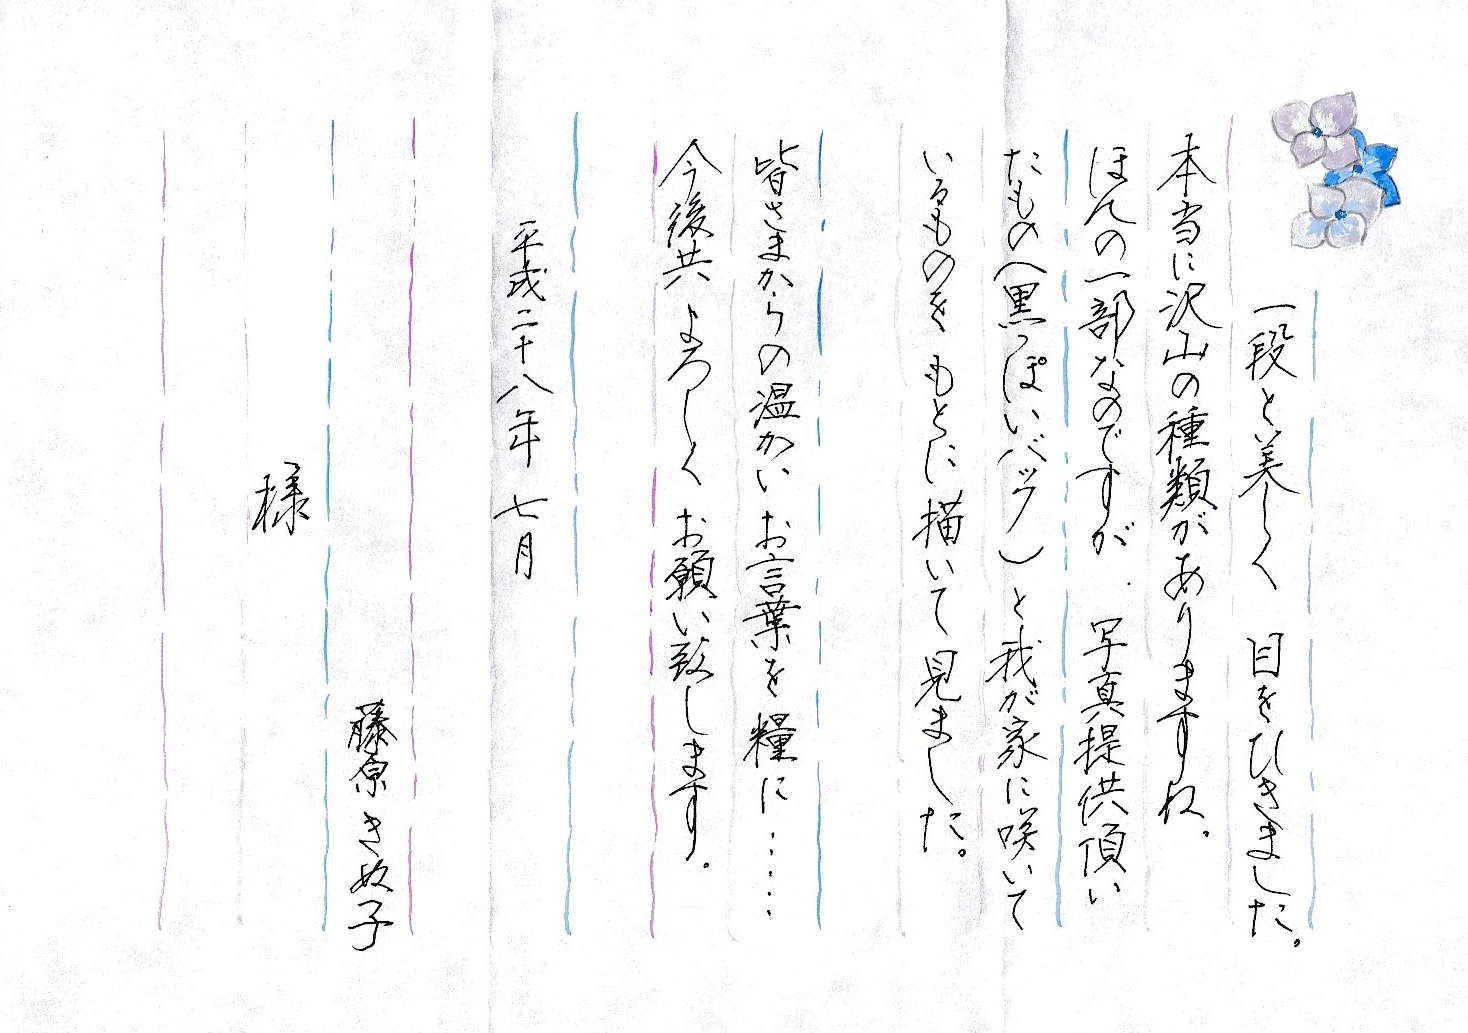 一段と美しく 目をひきました。
本当に沢山の種類がありますね。
ほんの一部なのですが、写真提供頂い
たもの(黒っぽいバック)と我が家に咲いて
いるものを もとに描いて見ました。
皆さまからの温かい お言葉を 糧に……
今後共 よろしく お願い致します。
平成二十八年 七月
藤原 きぬ子
様